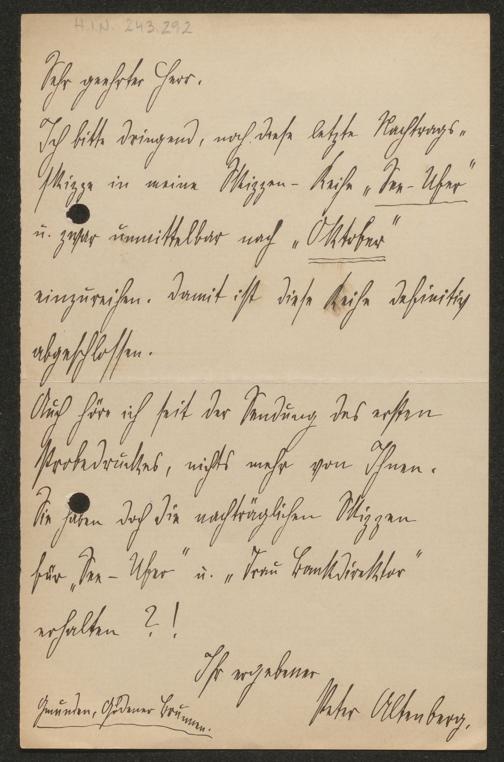 H.I.N. 243.292
Sehr geehrter Herr.
Ich bitte dringend, noch diese letzte Nachtrags-
skizze in meine Skizzen-Reihe „See-Ufer"
u. zwar unmittelbar nach „Oktober"
einzureihen. Damit ist diese Reihe definitiv
abgeschlossen.
Auch höre ich seit der Sendung des ersten
Probedruckes, nichts mehr von Ihnen.
Sie haben doch die nachträglichen Skizzen
für „See-Ufer" u. „Frau Bankdirektor"
erhalten ?!
Ihr ergebener
Peter Altenberg.
Gmunden, Brunnen.